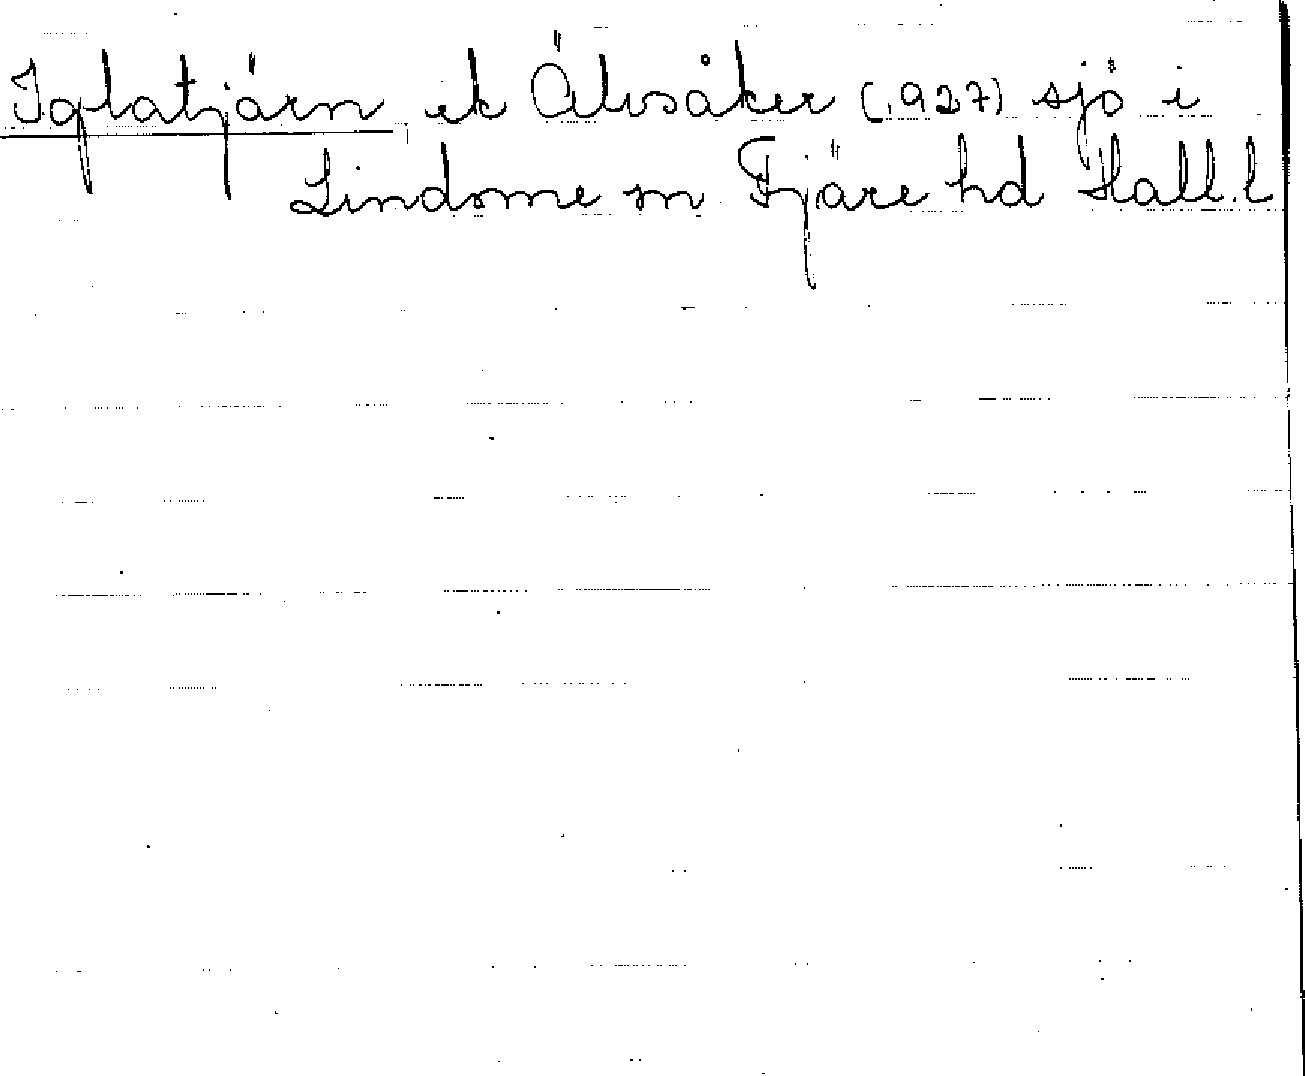 Iglatjärn ek Älvsåker (1927) sjö i
Lindome sn Fjäre hd Hall. l